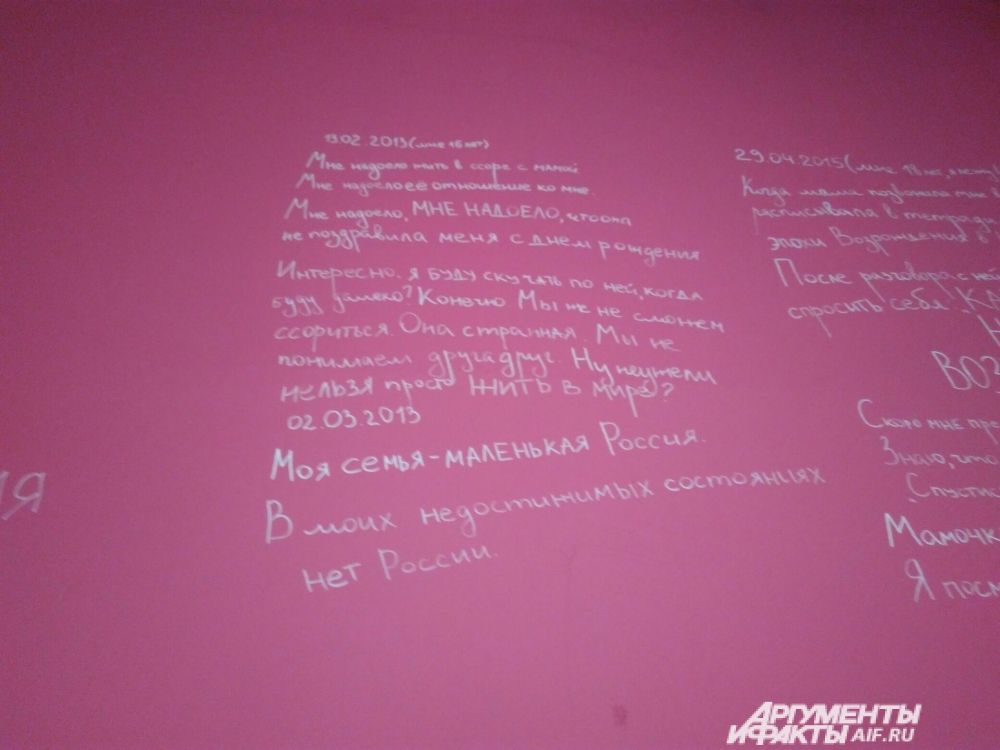 19.02.2013 (мне 16 лет)
Мне надоело жить в ссоре с мамой
Мне надоело её отношение ко мне.
Мне надоело, МНЕ НАДОЕЛО, что она
не поздравила меня с днем рождения
Интересно, я буду скучать по ней, когда
буду далеко? Конечно Мы же не сможем
ссориться. Она странная. Мы не
понимаем друг друг. Ну неужели
нельзя просто ЖИТЬ в мире?
02.03.2013
Моя семья - маленькая Россия.
В моих недостижимых состояниях
нет России.
ия
29.04.2015 (мне 18 лет,
Когда мама позвонила мне
расписывала в тетради
эпохи Возрождения в
После разговора с ней
спросить себя: "КА
ВОЗ
Скоро мне пре
Знаю, что
Спустя
Мамочк
Я посм
АРГУМЕНТЫ
И ФАКТЫ AIF.RU